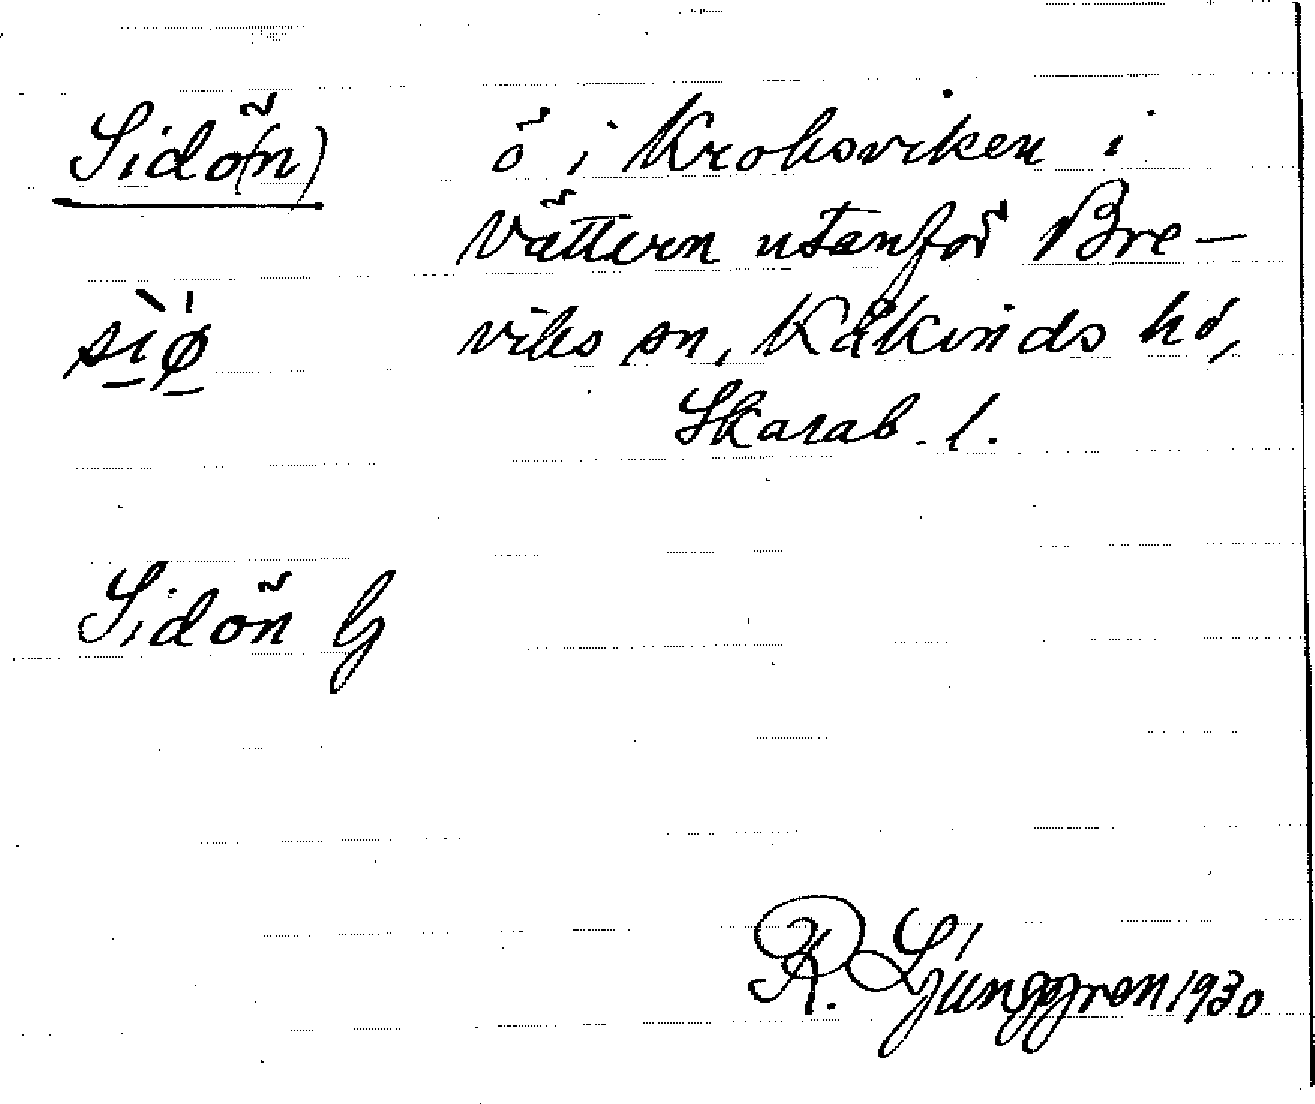 Sidö(n) ö i Kroksviken i
Vättern utanför Bre-
sìǿ viks sn, Kåkinds hd,
Skarab. l.
Sidön G
R. Ljunggren 1930